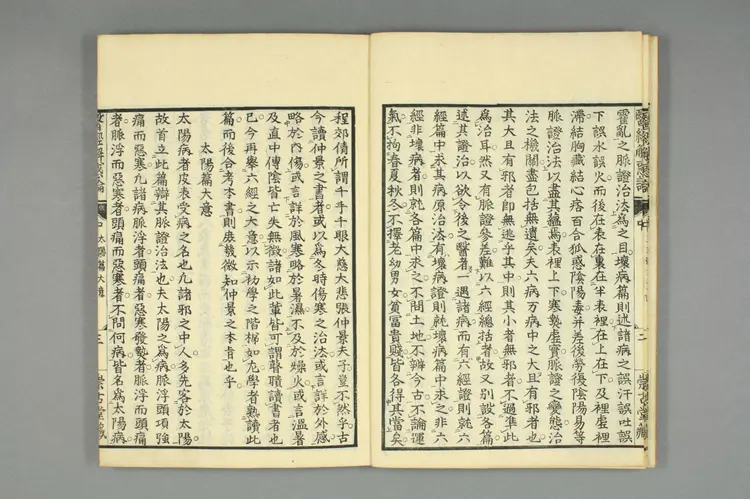 霍亂之脈證治法爲之目壞病篇則述諸病之誤汗誤吐誤
下誤水誤火而後在表在裏在半表裡在上在下及裡虛裡
滯結胸藏結心痞百合狐惑陰陽毒并差後勞復陰陽易等
脈證治法以盡其蘊焉表裡上下寒熱虛實脈證之變態治
法之機關盡包括無遺矣夫六病万病中之大且有邪者也
其大且有邪者卽無逃乎其中則其小者無邪者不過準此
爲治耳然又有脈證參差難以六經總括者故又別設各篇
述其證治以欲令後之醫者一遇諸病而有六經證則就六
經篇中求其病原治法有壞病證則就壞病篇中求之非六
經非壞病者則就各篇中求之不問土地不辨今古不論運
氣不拘春夏秋冬不擇老幼男女貧冨貴賤皆各得其當矣
程郊倩所謂千手千眼大慈大悲張仲景夫子豈不然乎古
今讀仲景之書者或以爲冬時傷寒之治法或言詳於外感
略於內傷或言詳於風寒略於暑濕不及於燥火或言溫瘧
及直中傳陰皆亡失無徵諸如此輩皆可謂聾聵讀書者也
已今再舉六經之大意以示初學之階梯如允學者熟讀此
篇而後合考本書則庶幾微知仲景之本旨也乎
太陽篇大意
太陽病者皮表受病之名也凡諸邪之中人多先客於太陽
故首立此篇辯其脈證治法也夫太陽之爲病脈浮頭項強
痛而惡寒凡諸病脈浮者頭痛者惡寒發熱者脈浮而頭痛
者脈浮而惡寒者頭痛而惡寒者不問何病皆名爲太陽病
中
二
崇古堂藏
中 太陽篇大意
三
崇古堂藏